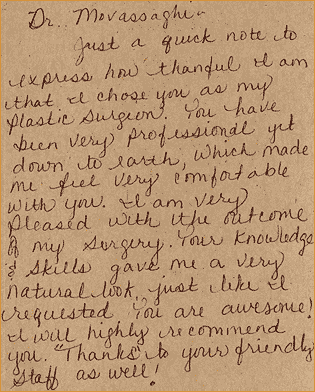 Dr. Movassaghi -
Just a quick note to
express how thanful I am
that I chose you as my
plastic surgeon. You have
been very professional yet
down to earth, which made
me feel very comfortable
with you. I am very
pleased with the outcome
of my surgery. Your knowledge
& skills gave me a very
natural look, just like I
requested. You are awesome!
I will highly recommend
you. "Thanks" to your friendly
staff as well!